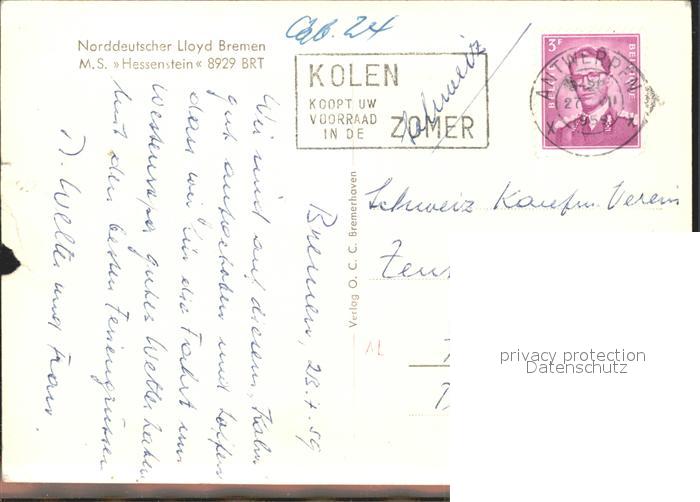 Cab. 24
Norddeutscher Lloyd Bremen
M.S. »Hessenstein« 8929 BRT
KOLEN
KOOPT UW
VOORRAAD
IN DE ZOMER
Schweiz
3F
BELGIE
ANTWERPEN
1959
Bremen, 23.7.59
Wir sind auf diesem Kahn
gut aufgehoben und hoffen
dass wir für die Fahrt um
Westeuropa gutes Wetter haben.
Mit den besten Feriengrüssen
D. Welti und Frau.
Verlag O. C. C. Bremerhaven
Schweiz Kaufm. Verein
AL
privacy protection
Datenschutz